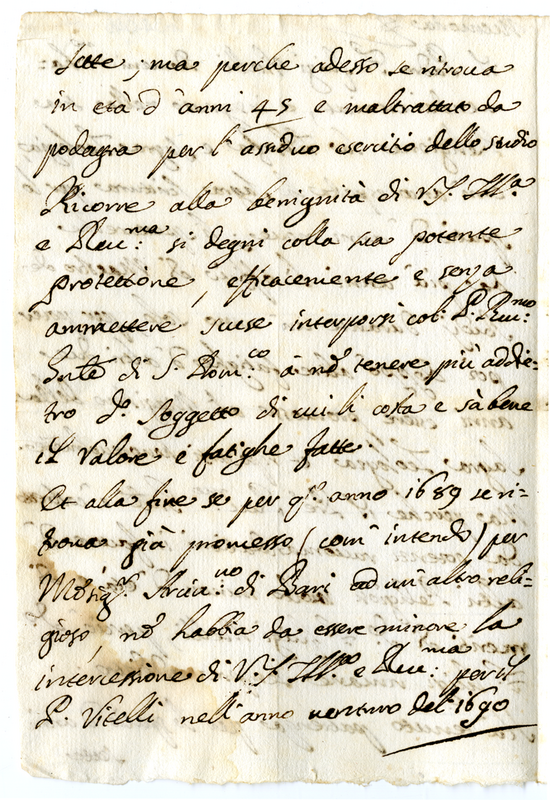 fatte; ma perche adesso se ritroua
in età d'anni 45 e maltrattato da
podagra per l'assiduo esercitio dello studio
Ricorre alla benignità di V.S. Ill.ma
e Reu:ma si degni colla sua potente
protettione, efficacemente e senza
ammettere scuse interporsi col P. Reu:mo
Gnle di S. Dom:co à nõ tenere più addie-
tro do. soggetto di cui li costa e sà bene
il valore e fatighe fatte.
Et alla fine se per qo. anno 1689 se ri-
troua già promesso (com' intendo) per
Monsig.r Arciu:uo di Bari ad un'altro reli-
gioso, nõ habbia da essere minore la
intercessione di V.S. Ill.ma e Reu:ma per il
P. Vitelli nell'anno venturo del 1690